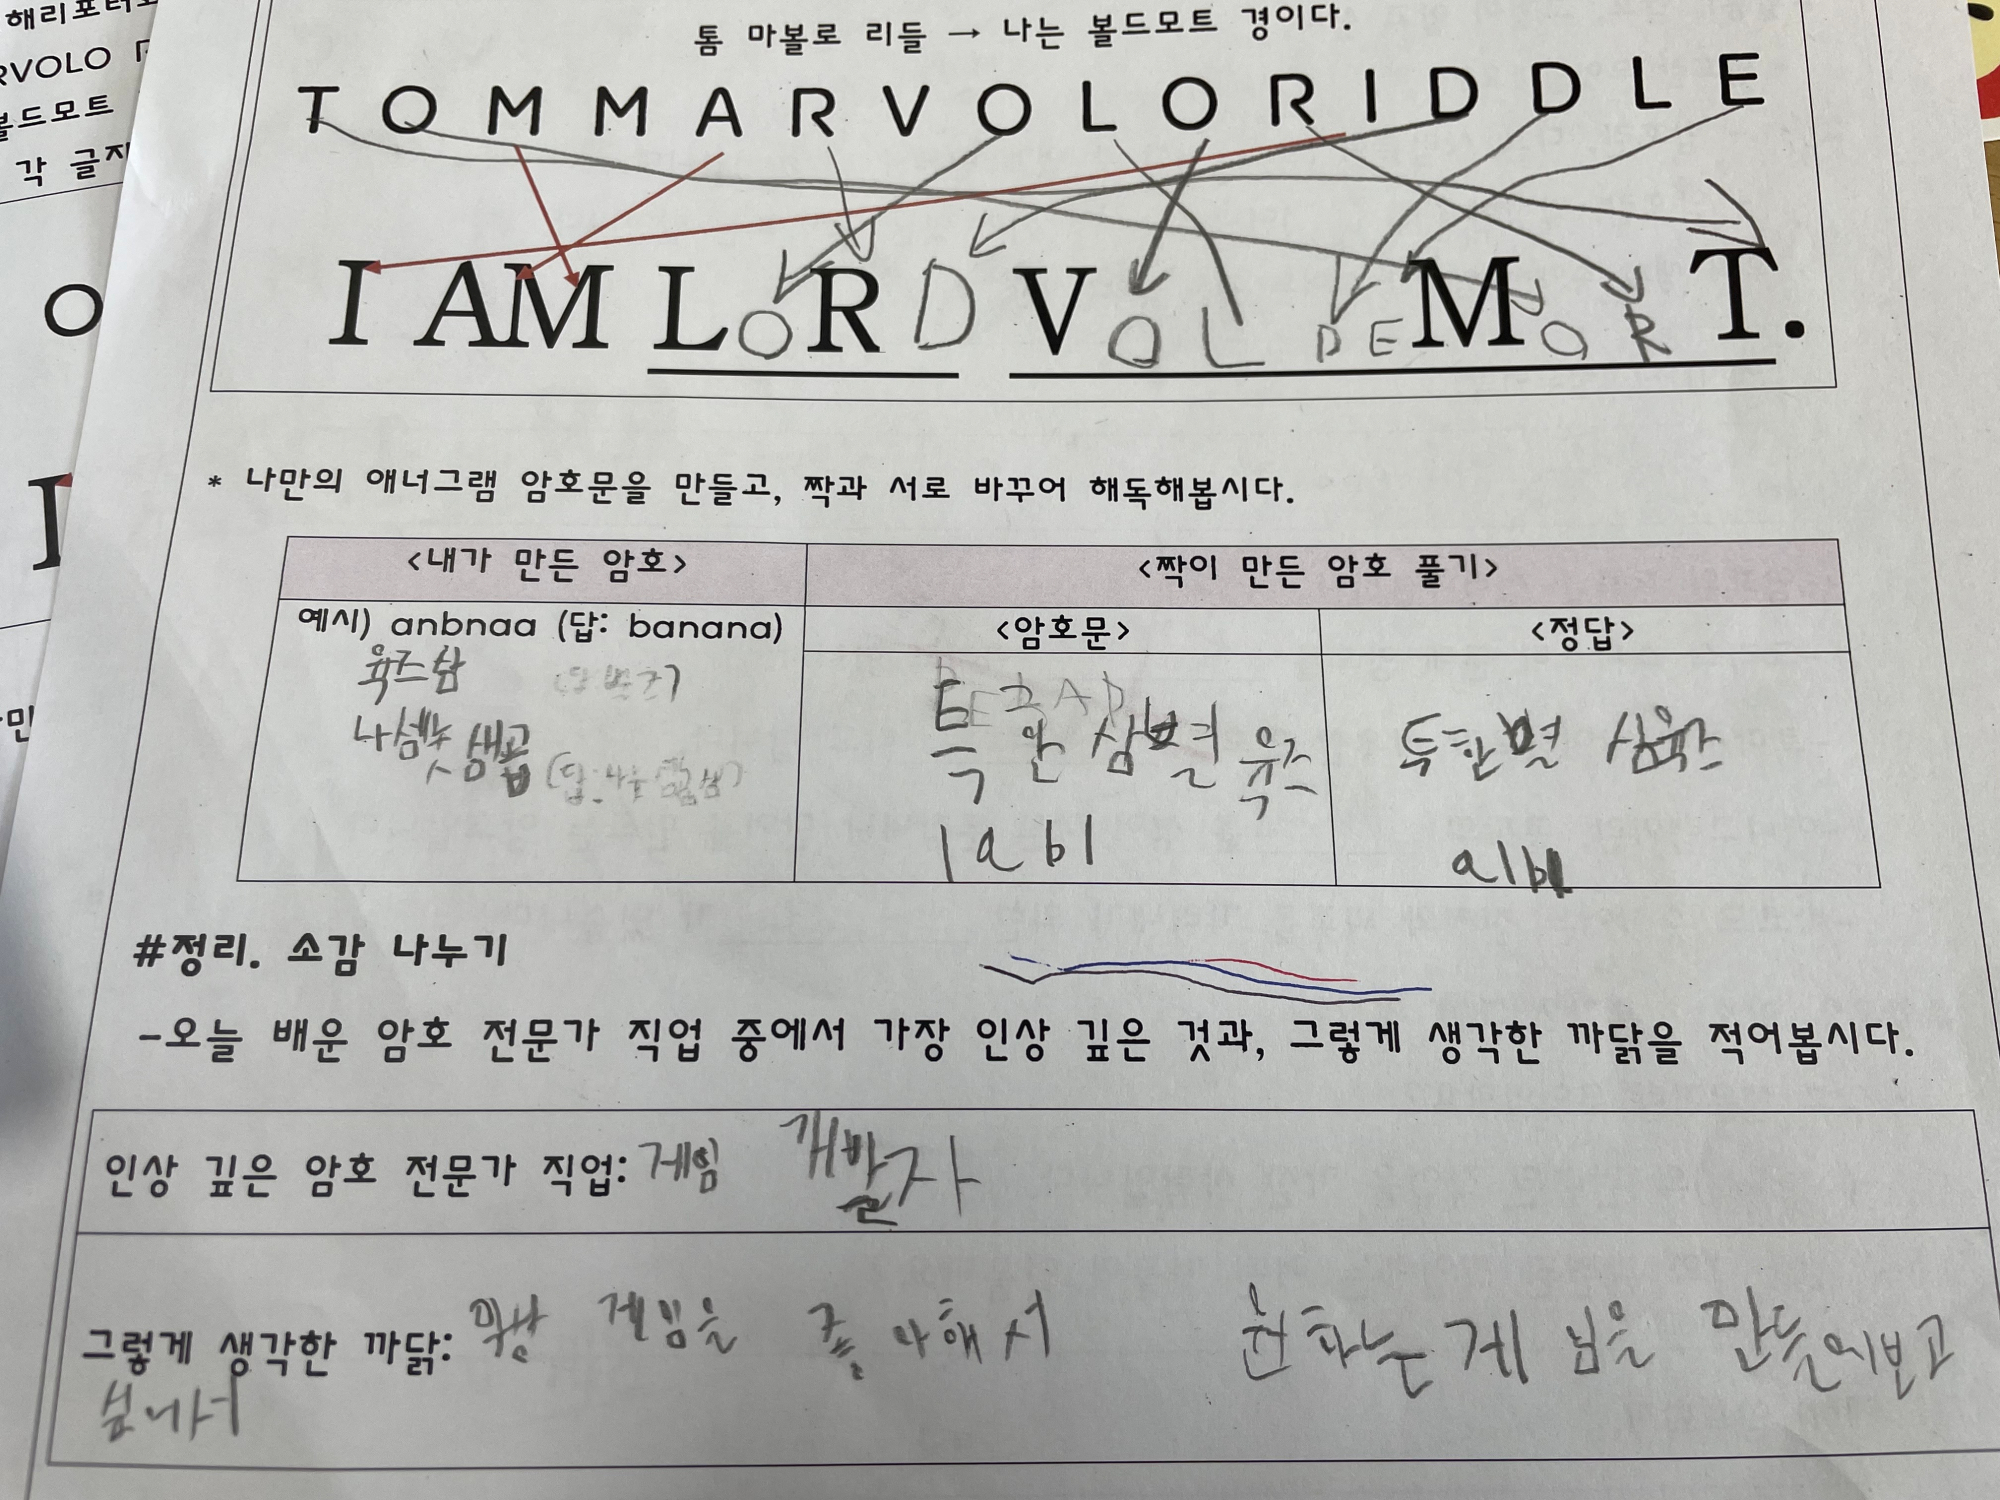 해리포터
RVOLO
볼드모트
각 글자
O
I
톰 마볼로 리들 → 나는 볼드모트 경이다.
T O M M A R V O L O R I D D L E
I AM LORD VOLDEMORT.
* 나만의 애너그램 암호문을 만들고, 짝과 서로 바꾸어 해독해봅시다.
<내가 만든 암호> <짝이 만든 암호 풀기>
예시) anbnaa (답: banana) <암호문> <정답>
육즈삼
특 한 삼별 육즈 특한별 삼육즈
1a b1 a1b1
#정리. 소감 나누기
-오늘 배운 암호 전문가 직업 중에서 가장 인상 깊은 것과, 그렇게 생각한 까닭을 적어봅시다.
인상 깊은 암호 전문가 직업: 게임 개발자
그렇게 생각한 까닭: 게임을 좋아해서 게임을 만들어보고
싶어서